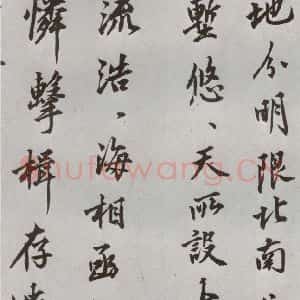 地分明限北南
塹悠、天所設
流浩、海相函
憐擊楫存
shufawang.CN